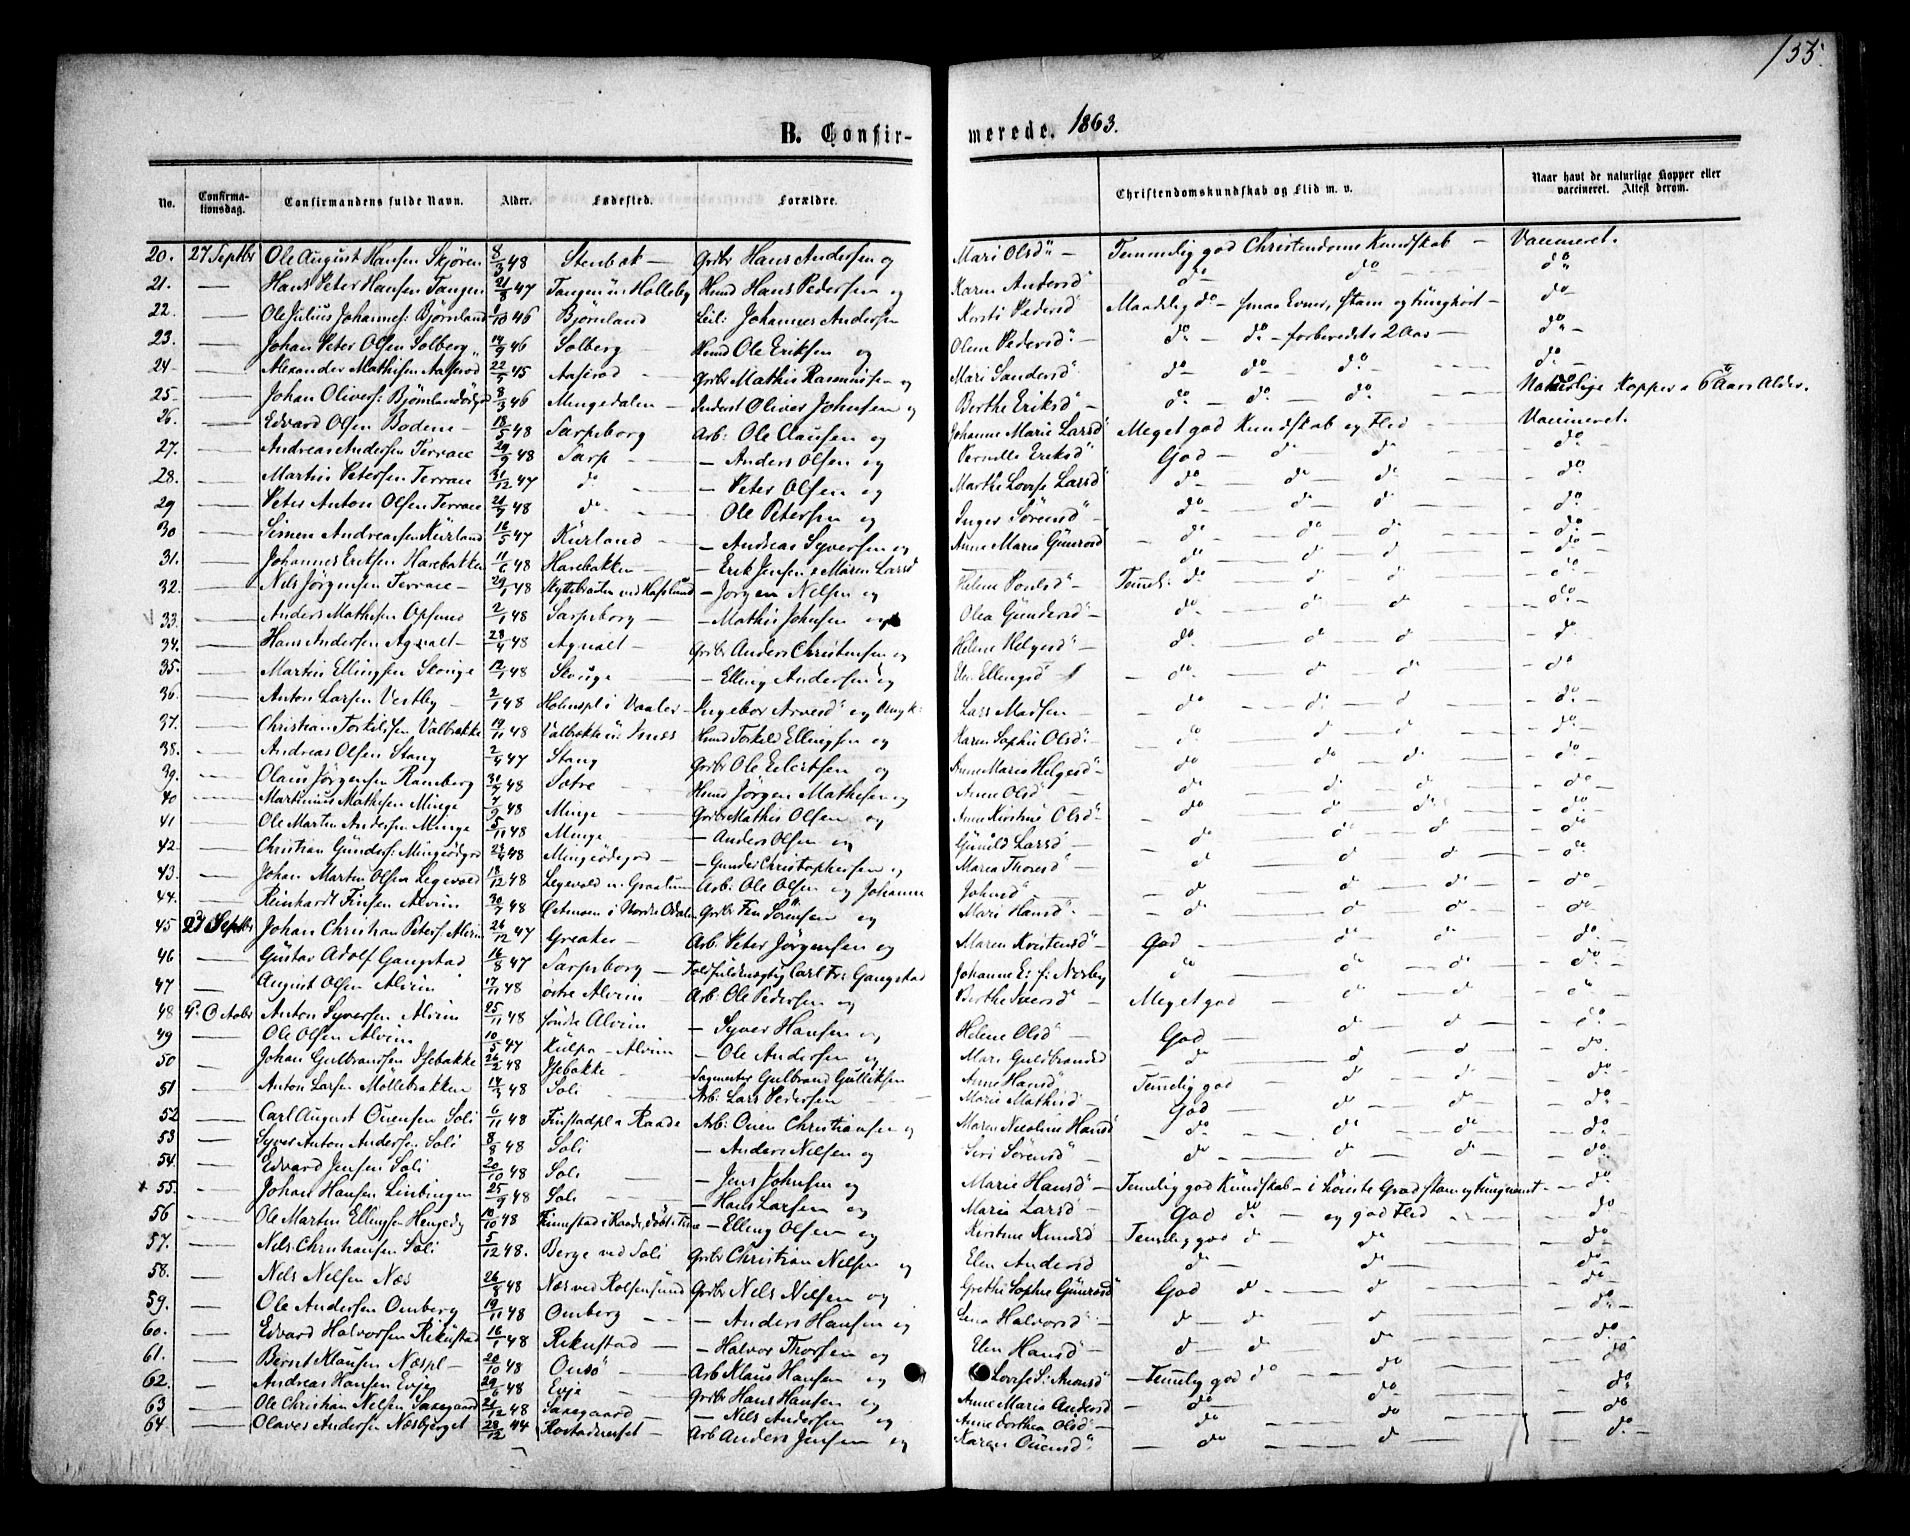 155.
B. Confirmerede. 1863.
No. Confirmationsdag. Confirmandens fulde Navn. Alder. Fødested. Forældre. Christendomskundskab og Flid m. v. Naar havt de naturlige Kopper eller vaccineret. Attest derom.
20. 27 Septbr Ole August Hansen Skjøren 8/3 48 Stenbak — Grbr Hans Andersen og Mari Olsd — Temmelig god Christendoms Kundskab — Vaccineret.
21. — Hans Peter Hansen Tangen 21/8 47 Tangen u. Holleby Huusmd Hans Pedersen og Karen Andersd do — do do
22. — Ole Julius Johannes: Bjørnland 1/10 46 Bjørnland Leil: Johannes Andersen Kirsti Pedersd Maadelig do — smaa Evner, stam og tunghørt — do
23. — Johan Peter Olsen Solberg 14/9 46 Solberg — Huusmd Ole Eriksen og Olene Pedersd — do — do — forberedets 2 Aar — do —
24 — Alexander Mathisen Aaserød 22/5 45 Aaserød — Grbr Mathis Rasmussen og Mari Sandersd do — do — do do —
25 — Johan Olivers: Bjørnlandødegd 8/3 46 Mingedalen — Inderst Oliver Johnsen og Berthe Eriksd — do — do — do Naturlige Kopper 6 Aars Alder.
26. — Edvard Olsen Bodene — 18/5 48 Sarpsborg Arb: Ole Clausen og Johanne Marie Larsd Meget god Kundskab og Flid Vaccineret.
27. — Andreas Andersen Terrace 29/9 48 Sarp — — Anders Olsen og Pernille Eriksd God — do do do
28. — Martin Petersen Terrace 31/12 47 do — Peter Olsen og Marthe Lovise Larsd do — do do do
29 — Peter Anton Olsen Terrace 21/7 48 do — Ole Petersen og Inger Sørensd — do — do do do
30 — Simen Andreassen Kurland 16/5 47 Kurland — — Andreas Syversen og Anne Marie Gunrød do — do do do
31. — Johannes Eriksen Harebakken 11/6 48 Harebakken — — Erik Jensen & Maren Larsd do — do do do
32. — Nils Jørgensen Terrace — 29/1 48 Skytebraaten ved Hafslund — Jørgen Nilsen og Helene Poulsd — Temel: do do do do
33. — Anders Mathisen Opsund 2/1 48 Sarpsborg — — Mathis Johnsen og Olea Gundersd — do do do do
34. — Hans Andersen Agnalt — 28/4 48 Agnalt — Grbr Anders Christensen og Helene Helgesd — do do do do
35. — Martin Ellingsen Skonge 12/1 48 Skonge — Elling Andersen og Ellingsd do do do do
36. — Anton Larsen Vestby — 2/1 48 Holmspl i Vaaler — Ingebor Arvesd og Lars Madsen — do do do do
37. — Christian Torkildsen Valbrække 19/11 48 Valbrække u. Huusmd Torkild Ellingsen og Karen Sophie Olsd — do do do do
38. — Andreas Olsen Stang 2/4 47 Stang Grbr Ole Eilertsen og Anne Marie Helgesd — do do do do
39. — Olaus Jørgensen Ramberg 30/7 48 Sætre — Huusmd Jørgen Mathisen og Anne Olsd — do do do do
40 — Martinius Mathisen Minge 4/9 48 Minge — Grbr Mathis Olsen og Anne Kirstine Olsd — do do do do
41 — Ole Martin Andersen Minge 5/11 48 Minge — — Anders Olsen og Gunild Larsd do do do do
42. — Christian Gunders: Mingeødegd 23/4 48 Mingeødegd — — Gunder Christophersen og Maren Thoresd do do do do
43. — Johan Martin Olsen Legevold 18/12 48 Legevold u. Graatum Arb: Ole Olsen og Johanne Johnsd — do do do do
44. — Reinhardt Finsen Alvim 30/7 48 Oetmoen i Nordre Odalen Grbr Fin Sørensen og Mari Hansd — do do do do
45 27 Septbr Johan Christian Peters: Alvim 26/12 47 Greaker — Arb. Peter Jørgensen og Maren Kristensd — God — do do do
46 — Gustav Adolf Gangstad 16/8 47 Sarpsborg — Toldfuldmægtig Carl Fr: Gangstad Johanne E: f: Næsby do do do do
47 — August Olsen Alvim 17/11 48 østre Alvim — Arb: Ole Pedersen og Berthe Iversd — Meget god do do do
48 4. Octobr Anton Syversen Alvim 25/11 48 søndre Alvim — Syver Hansen og Helene Olsd — God — do do do
49 — Ole Olsen Alvim 10/5 47 Kulpe — Alvim — Ole Andersen og Mari Guldbrandsd — do do do do
50 — Johan Gulbrandsen Isebakke 26/2 48 Isebakke — Sagmester Gulbrand Gulliksen Anne Hansd — Temelig god do do do
51 — Anton Larsen Møllebakken 14/3 48 Soli — Arb: Lars Pedersen Marie Mathisd — God do do do
52 — Carl August Ouensen Soli 6/11 48 Finstadpl u Raade Arb: Ouen Christiansen og Maren Nicoline Hansd — do do do do
53 — Syver Anton Andersen Soli 8/8 48 Soli — Anders Nilsen og Siri Sørensd — do do do do
54. — Edvard Jensen Soli 20/10 48 Soli — Jens Johnsen og Marie Hansd — Temelig god Kundskab — i høieste Grad stam og tungnemt — do
55. — Johan Hansen Linbingen 25/9 48 Soli — — Hans Larsen og Maria Larsd — God do — og god Flid do
56 — Ole Martin Ellingsen Hengedy 10/10 48 Finnestad i Raade, døbt i Tune — Elling Olsen og Kirstine Knudsd — Temelig god do do do
57. — Nils Christiansen Soli 5/12 48. Berge ved Soli Grbr Christian Nilsen og Elen Andersd — do do do
58. — Nils Nilsen Næs 26/8 48 Næs ved Rolfsensund Grbr Nils Nilsen og Grethe Sophie Gunrød God do — do do
59. — Ole Andersen Omberg 19/11 48 Omberg — — Anders Hansen og Lena Halvorsd — do — do do do
60. — Edvard Halvorsen Rikustad 16/1 48 Rikustad — — Halvor Thorsen og Elen Hansd — do do do do
61. — Bernt Klausen Næspl — 20/10 48 Onsø — Arb Klaus Hansen og Lovise S: Amonsd — Temelig god do do do
62. — Andreas Hansen Evje 29/6 48 Evje — Grbr Hans Hansen og Anne Marie Andersd — do — do do
63 — Ole Christian Nilsen Saxegaard 21/12 48 Saxegaard — — Nils Andersen og Anne Dorthea Olsd — do do do
64. — Olaves Andersen Næsbjerget 28/12 44 Arb Anders Jensen og Karen Ouensd — do — do do